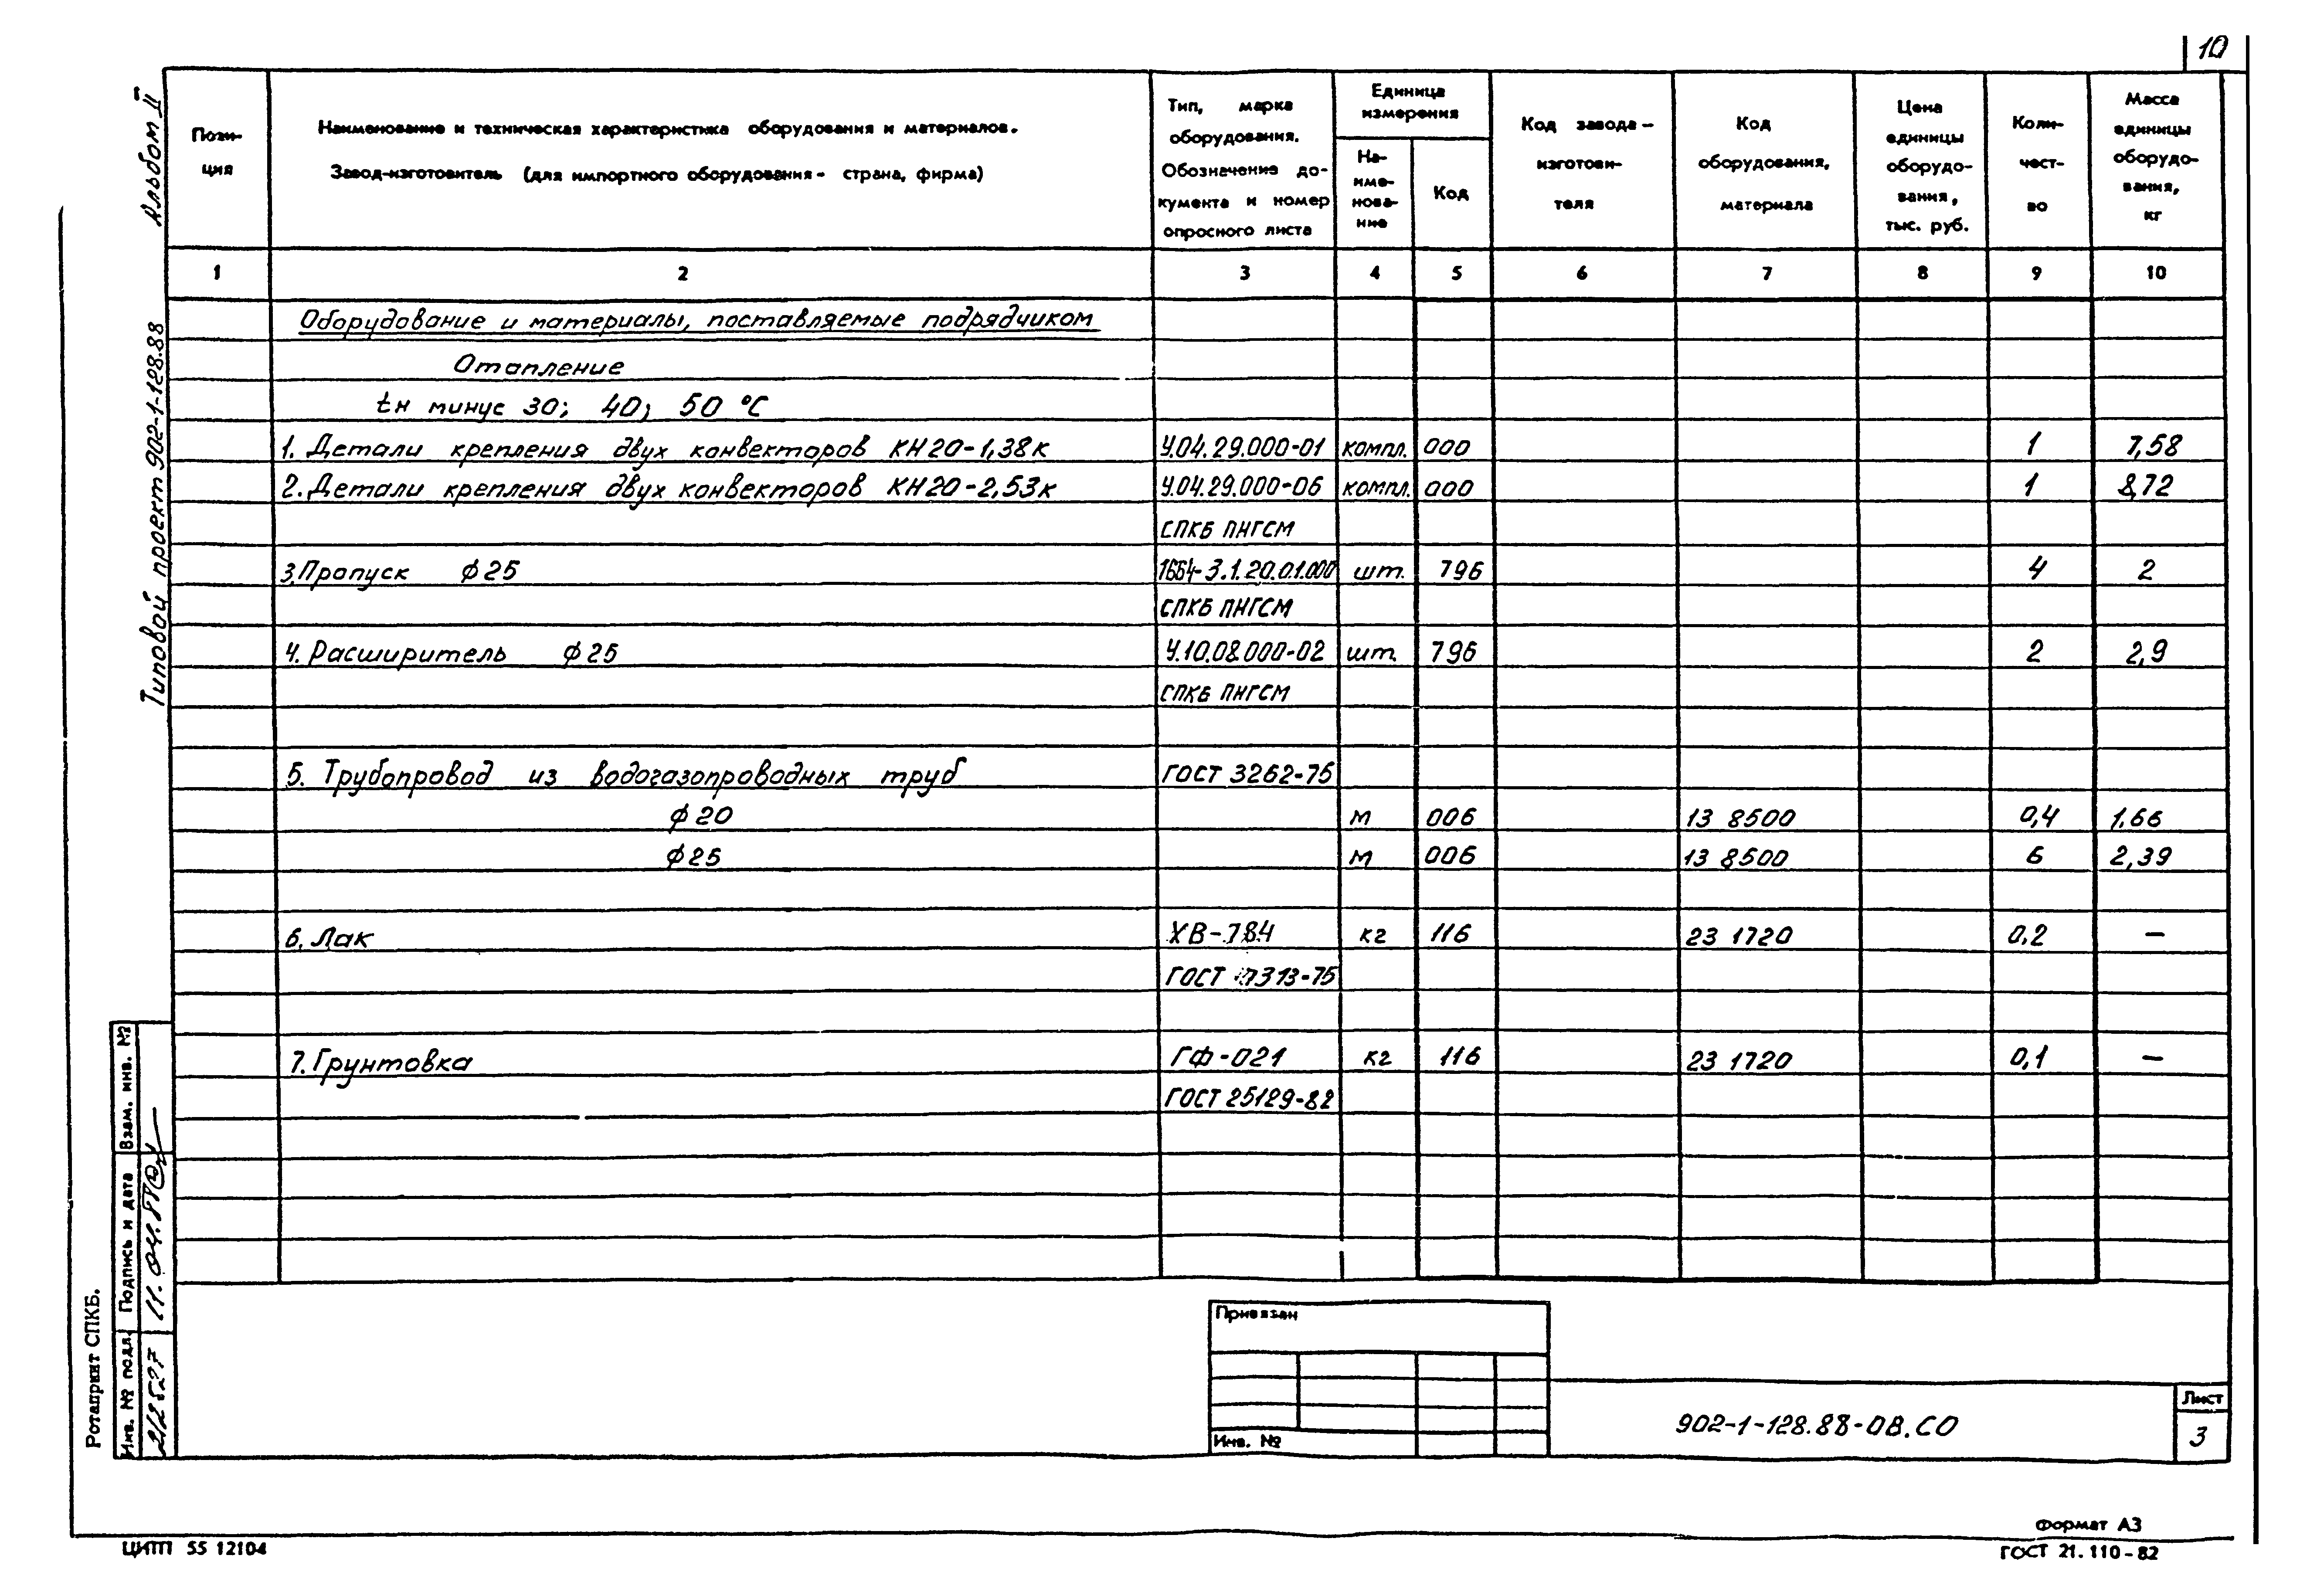 10
Альбом II
Типовой проект 902-1-128.88
Пози-
ция
Наименование и техническая характеристика оборудования и материалов.
Завод-изготовитель (для импортного оборудования - страна, фирма)
Тип, марка
оборудования.
Обозначение до-
кумента и номер
опросного листа
Единица
измерения
На-
име-
нова-
ние
Код
Код завода -
изготови-
теля
Код
оборудования,
материала
Цена
единицы
оборудо-
вания,
тыс. руб.
Коли-
чест-
во
Масса
единицы
оборудо-
вания,
кг
1 2 3 4 5 6 7 8 9 10
Оборудование и материалы, поставляемые подрядчиком
Отопление
tн минус 30; 40; 50 °C
1. Детали крепления двух конвекторов КН20-1,38к У.04.29.000-01 компл. 000 1 7,58
2. Детали крепления двух конвекторов КН20-2,53к У.04.29.000-06 компл. 000 1 8,72
СПКБ ПНГСМ
3. Пропуск ϕ25 1664-3.1.20.01.000 шт. 796 4 2
СПКБ ПНГСМ
4. Расширитель ϕ25 У.10.08.000-02 шт. 796 2 2,9
СПКБ ПНГСМ
5. Трубопровод из водогазопроводных труб ГОСТ 3262-75
ϕ20 м 006 13 8500 0,4 1.66
ϕ25 м 006 13 8500 6 2,39
6. Лак ХВ-784 кг 116 23 1720 0,2 —
ГОСТ 7313-75
7. Грунтовка ГФ-021 кг 116 23 1720 0,1 —
ГОСТ 25129-82
Взам. инв. №
Подпись и дата
11.04.88
Инв. № подл.
212527
Ротапринт СПКБ.
Привязан
Инв. №
902-1-128.88-ОВ.СО
Лист
3
Формат А3
ЦИТП 55 12104
ГОСТ 21.110-82